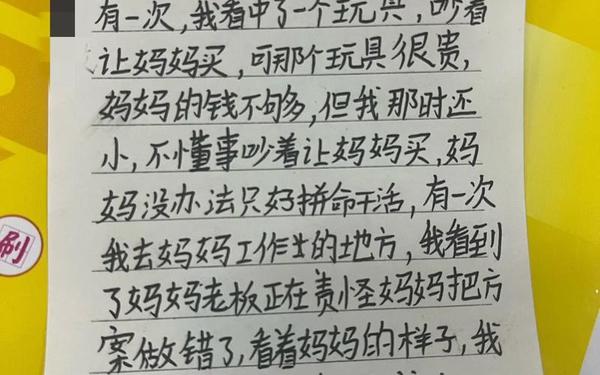 有一次,我看中了一个玩具,吵着
让妈妈买,可那个玩具很贵,
妈妈的钱不够多,但我那时还
小,不懂事吵着让妈妈买,妈
妈没办法只好拼命干活,有一次
我去妈妈工作的地方,我看到
了妈妈老板正在责怪妈妈把方
案做错了,看着妈妈的样子,我
刷